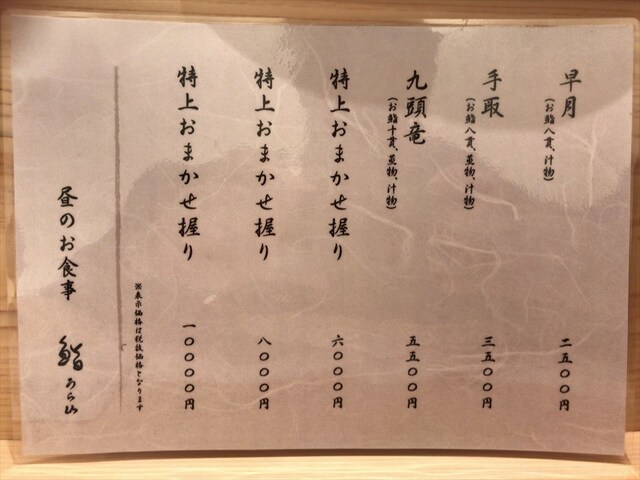 早月
(お鮨八貫、汁物)
二五〇〇円
手取
(お鮨八貫、蒸物、汁物)
三五〇〇円
九頭竜
(お鮨十貫、蒸物、汁物)
五五〇〇円
特上おまかせ握り
六〇〇〇円
特上おまかせ握り
八〇〇〇円
特上おまかせ握り
一〇〇〇〇円
※表示価格は税抜価格となります
昼のお食事
鮨 あら山